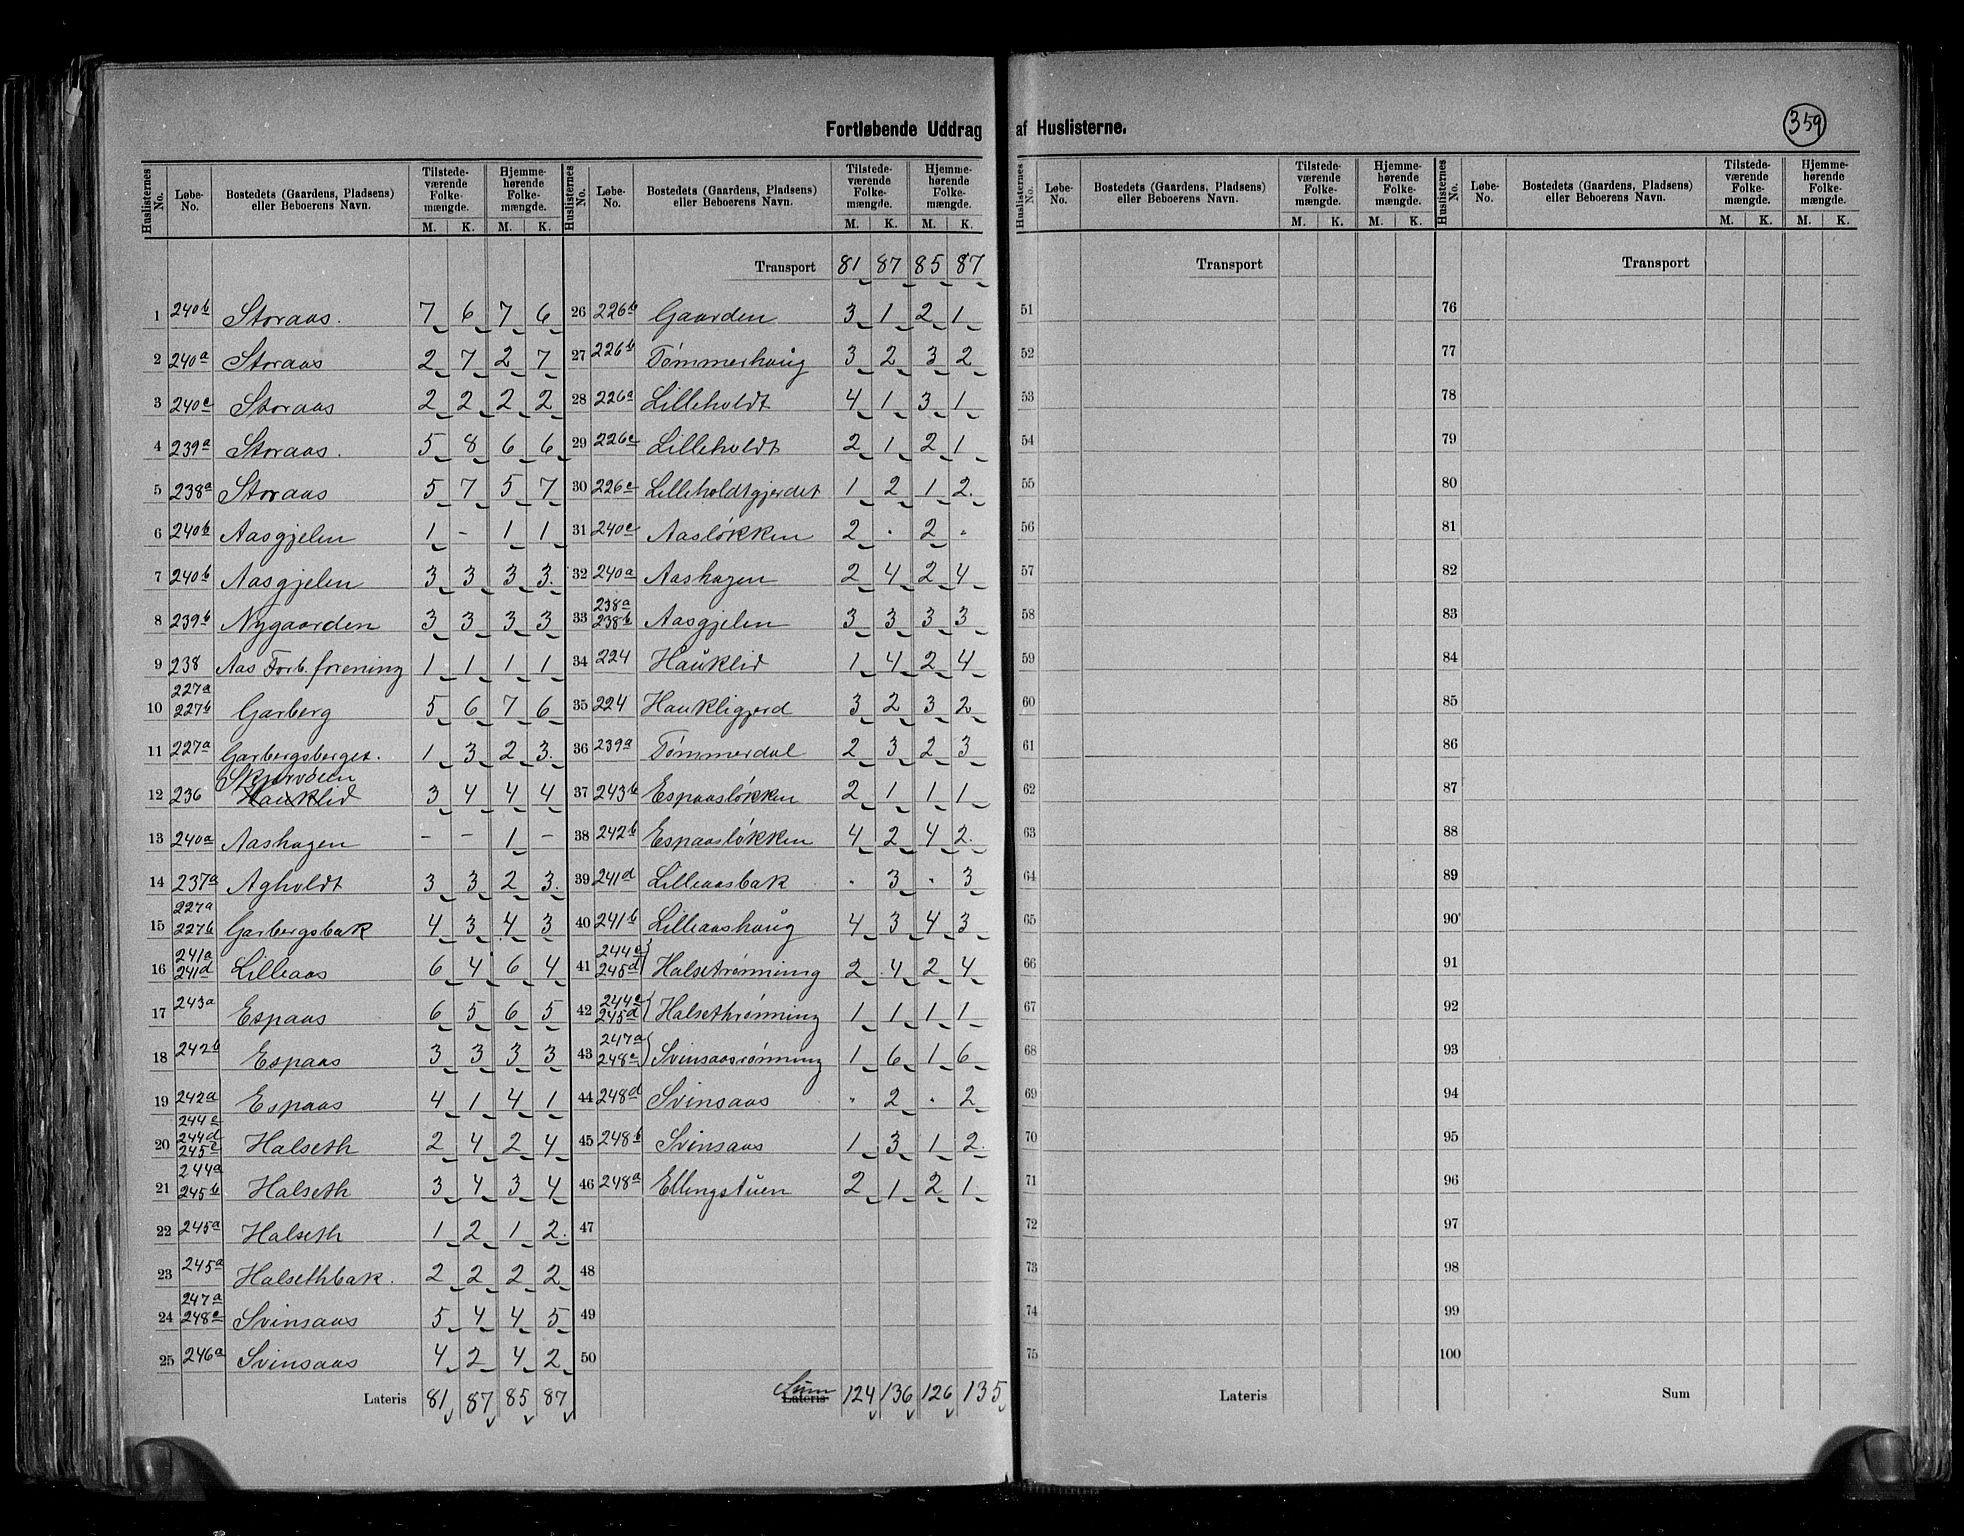 Fortløbende Uddrag af Huslisterne.
359
Huslisternes No. Løbe-No. Bostedets (Gaardens, Pladsens) eller Beboerens Navn. Tilstedeværende Folkemængde. M. K. Hjemmehørende Folkemængde. M. K.
1 240b Storaas. 7 6 7 6
2 240a Storaas 2 7 2 7
3 240c Storaas 2 2 2 2
4 239a Storaas. 5 8 6 6
5 238a Storaas 5 7 5 7
6 240b Aasgjelen 1 - 1 1
7 240b Aasgjelen 3 3 3 3.
8 239b Nygaarden 3 3 3 3
9 238 Aas Forb. forening 1 1 1 1
10 227a 227b Garberg 5 6 7 6
11 227a Garbergsberget. 1 3 2 3.
12 236 Skjurvøien Hauklid 3 4 4 4
13 240a Aashagen - - 1 -
14 237a Agholdt 3 3 2 3.
15 227a 227b Garbergsbak 4 3 4 3
16 241a 241d Lilleaas 6 4 6 4
17 243a Espaas 6 5 6 5
18 242b Espaas 3 3 3 3
19 242a Espaas 4 1 4 1
20 244c 244d 245c Halseth 2 4 2 4
21 244a 245b Halseth 3 4 3 4
22 245a Halseth 1 2 1 2.
23 245a Halsethbak. 2 2 2 2
24 247a 248c Svinsaas 5 4 4 5
25 246a Svinsaas 4 2 4 2
Lateris 81 87 85 87
Huslisternes No. Løbe-No. Bostedets (Gaardens, Pladsens) eller Beboerens Navn. Tilstedeværende Folkemængde. M. K. Hjemmehørende Folkemængde. M. K.
Transport 81 87 85 87
26 226b Gaarden 3 1 2 1
27 226b Tømmerhaug 3 2 3 2
28 226a Lilleholdt 4 1 3 1
29 226c Lilleholdt 2 1 2 1
30 226c Lilleholdtgjerdet 1 2 1 2.
31 240c Aasløkken 2 . 2 .
32 240a Aashagen 2 4 2 4
33 238a 238b Aasgjelen 3 3 3 3
34 224 Hauklid 1 4 2 4
35 224 Haukligjerd 3 2 3 2
36 239a Tømmerdal 2 3 2 3
37 243b Espaasløkken 2 1 1 1
38 242b Espaasløkken 4 2 4 2.
39 241d Lilleaasbak . 3 . 3
40 241b Lilleaashaug 4 3 4 3
41 244a 245d Halsetrønning 2 4 2 4
42 244c 245d Halsethrønning 1 1 1 1
43 247a 248c Svinsaasrønning 1 6 1 6
44 248d Svinsaas . 2 . 2
45 248b Svinsaas 1 3 1 2.
46 248a Ellingstuen 2 1 2 1
47
48
49
50
Sum Lateris 124 136 126 135
Huslisternes No. Løbe-No. Bostedets (Gaardens, Pladsens) eller Beboerens Navn. Tilstedeværende Folkemængde. M. K. Hjemmehørende Folkemængde. M. K.
Transport
51
52
53
54
55
56
57
58
59
60
61
62
63
64
65
66
67
68
69
70
71
72
73
74
75
Lateris
Huslisternes No. Løbe-No. Bostedets (Gaardens, Pladsens) eller Beboerens Navn. Tilstedeværende Folkemængde. M. K. Hjemmehørende Folkemængde. M. K.
Transport
76
77
78
79
80
81
82
83
84
85
86
87
88
89
90
91
92
93
94
95
96
97
98
99
100
Sum